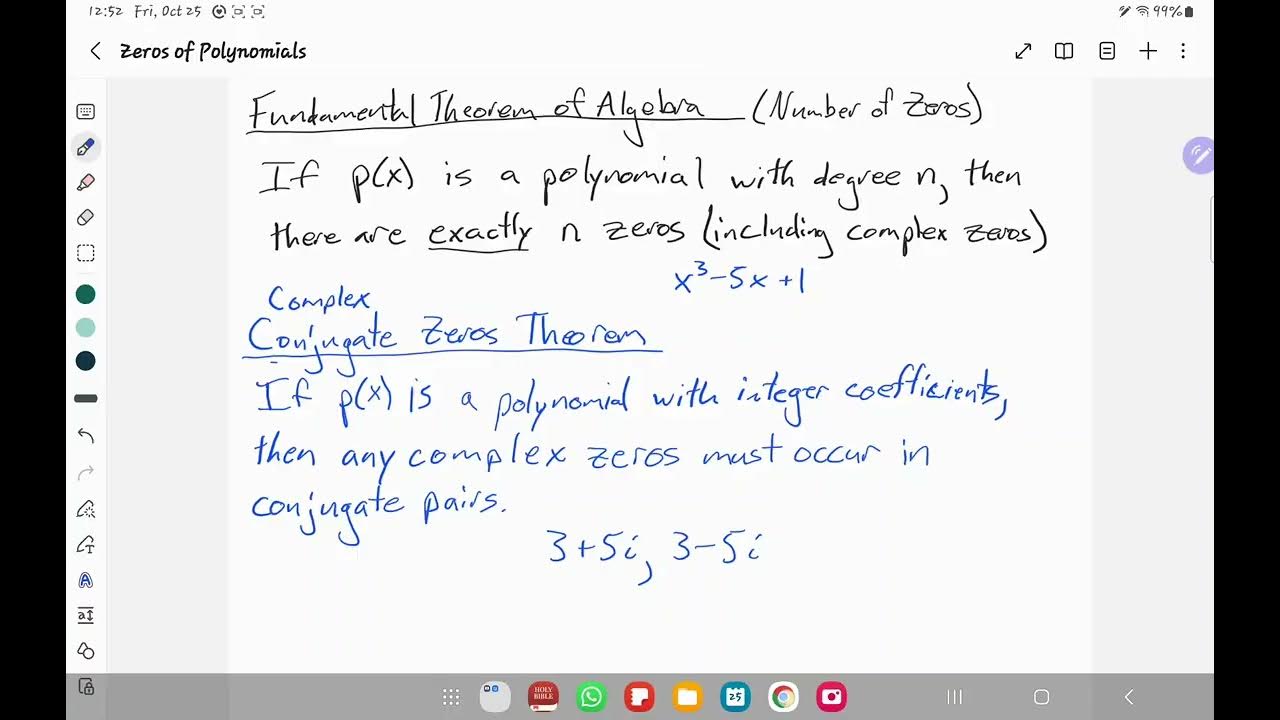 12:52 Fri, Oct 25
99%
Zeros of Polynomials
Fundamental Theorem of Algebra (Number of Zeros)
If p(x) is a polynomial with degree n, then
there are exactly n zeros (including complex zeros)
x³-5x+1
Complex
Conjugate Zeros Theorem
If p(x) is a polynomial with integer coefficients,
then any complex zeros must occur in
conjugate pairs.
3+5i, 3-5i
HOLY BIBLE
25